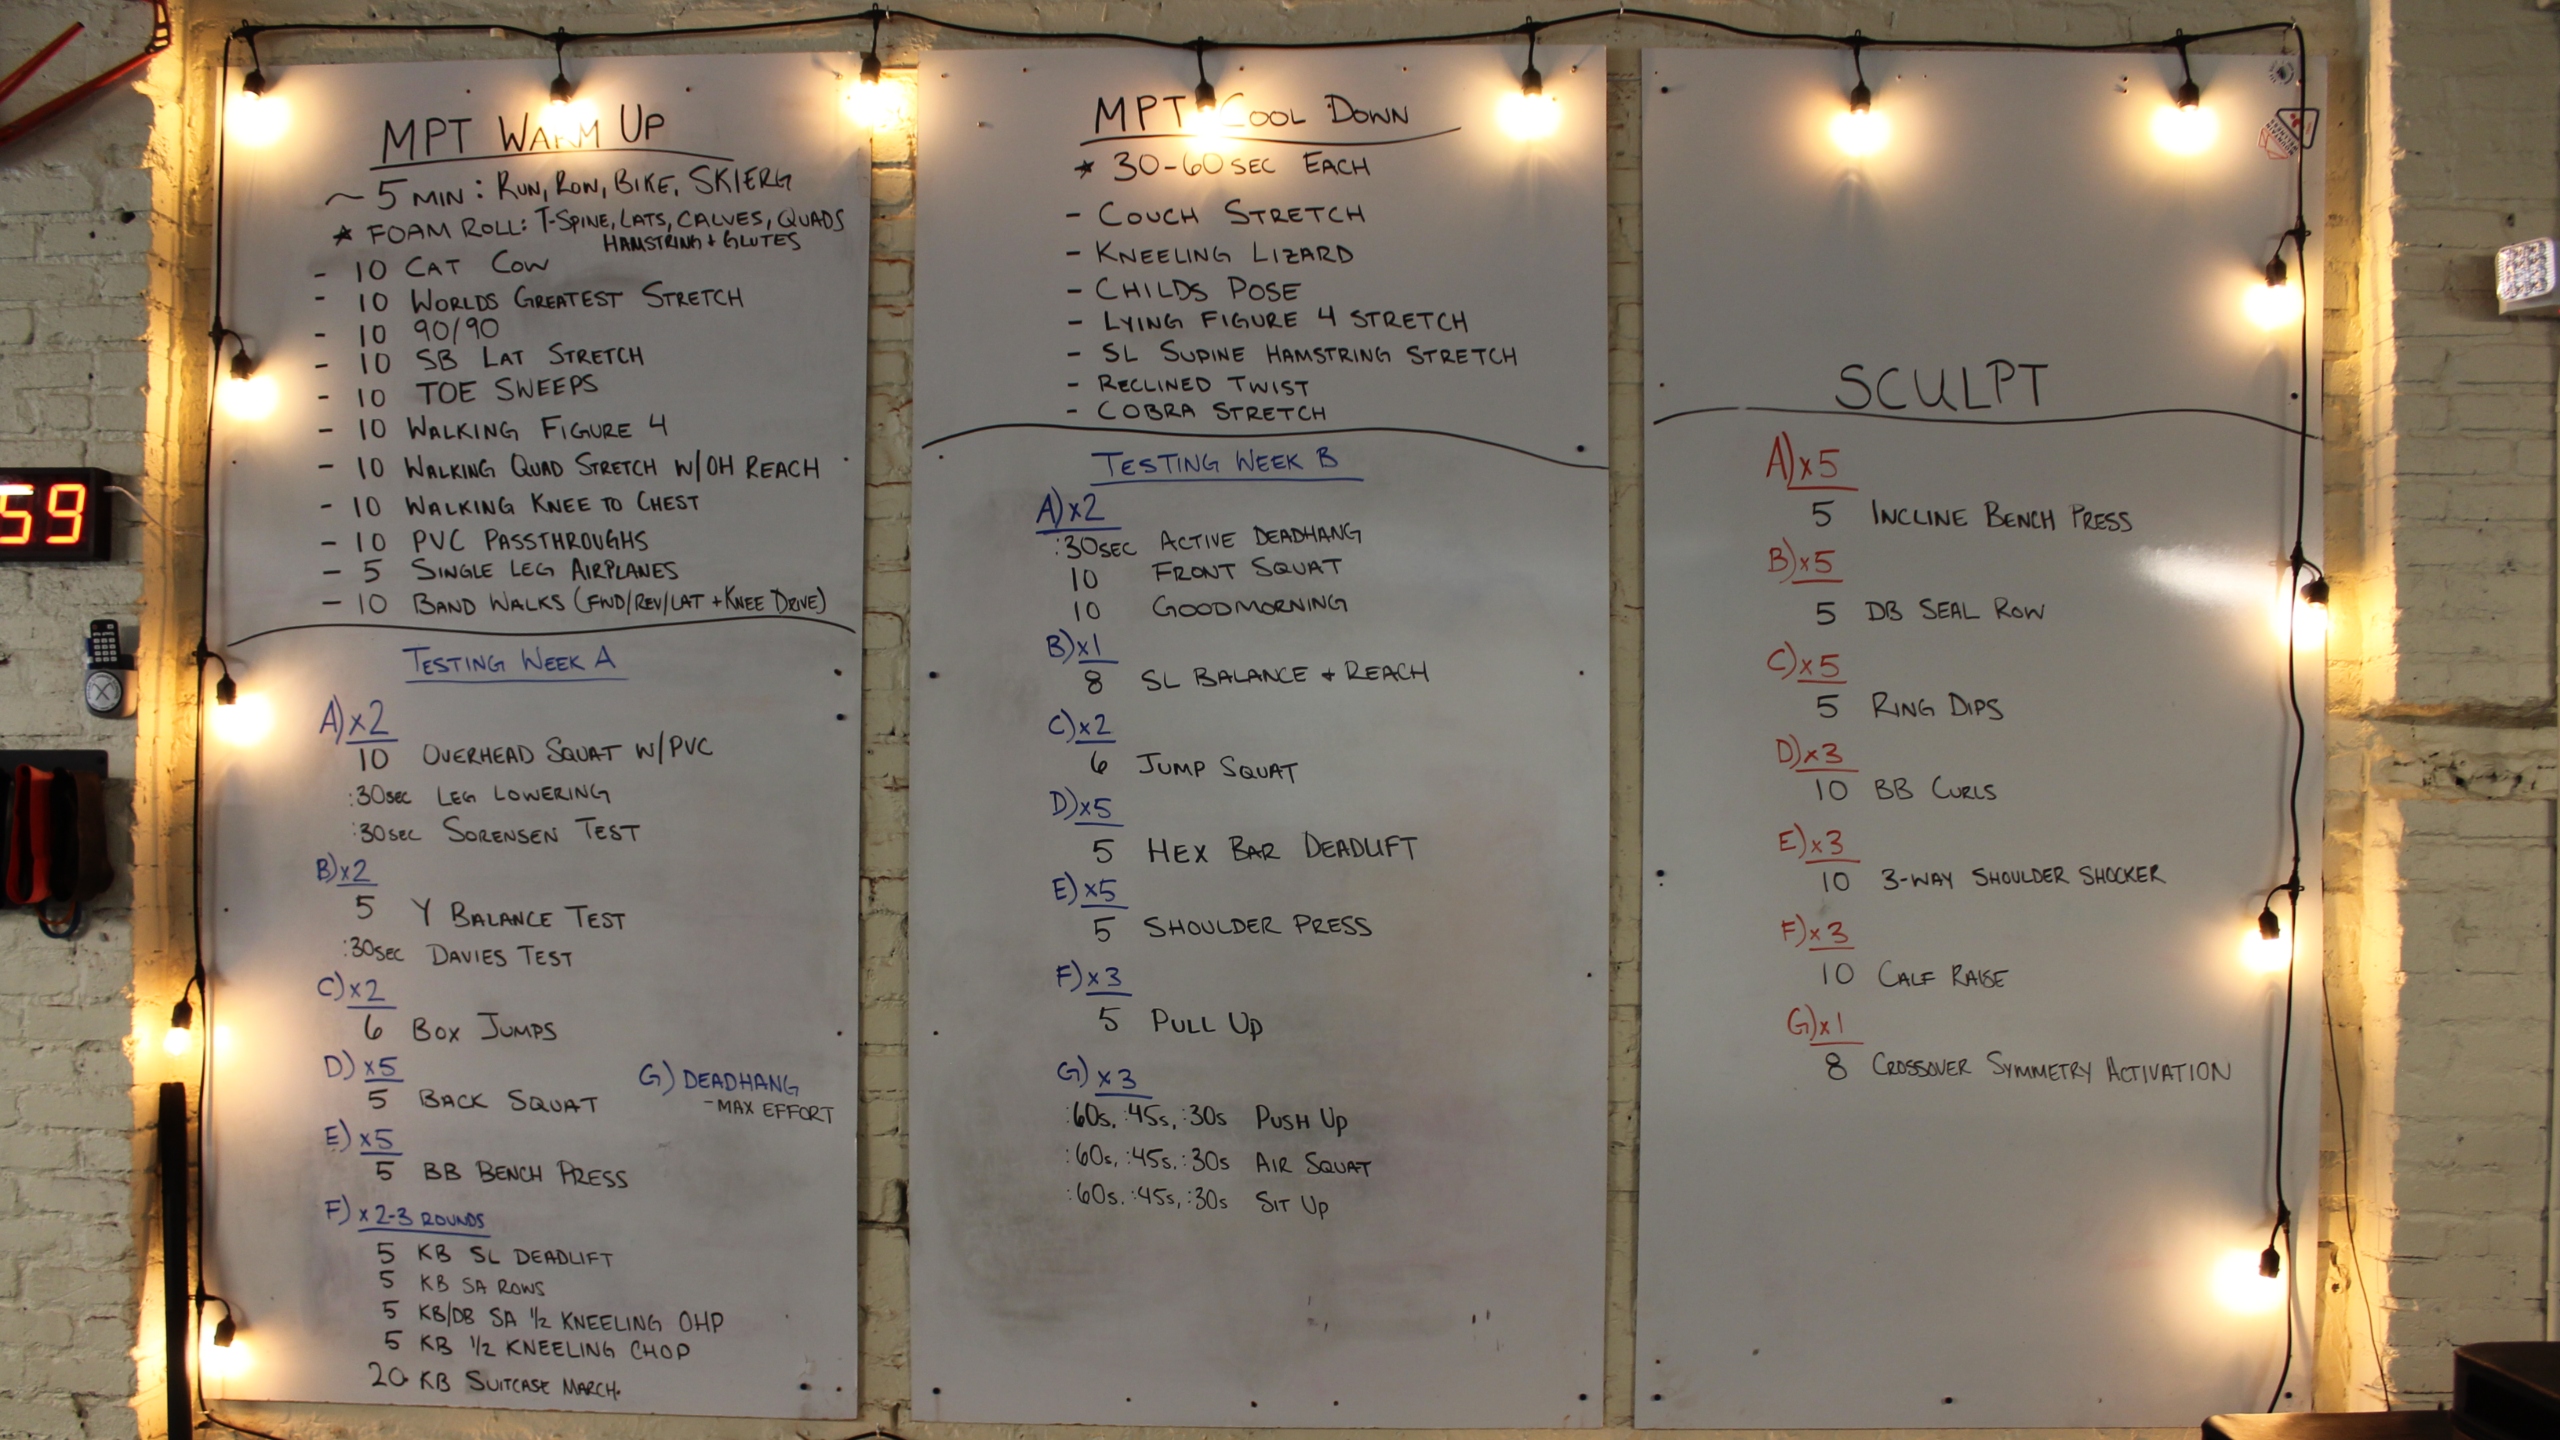 MPT WARM UP
~ 5 MIN: RUN, ROW, BIKE, SKIERG
* FOAM ROLL: T-SPINE, LATS, CALVES, QUADS
HAMSTRING + GLUTES
- 10 CAT COW
- 10 WORLDS GREATEST STRETCH
- 10 90/90
- 10 SB LAT STRETCH
- 10 TOE SWEEPS
- 10 WALKING FIGURE 4
- 10 WALKING QUAD STRETCH W/OH REACH
- 10 WALKING KNEE TO CHEST
- 10 PVC PASSTHROUGHS
- 5 SINGLE LEG AIRPLANES
- 10 BAND WALKS (FWD/REV/LAT + KNEE DRIVE)
TESTING WEEK A
A) x2
10 OVERHEAD SQUAT W/PVC
:30SEC LEG LOWERING
:30SEC SORENSEN TEST
B) x2
5 Y BALANCE TEST
:30SEC DAVIES TEST
C) x2
6 BOX JUMPS
D) x5
5 BACK SQUAT
E) x5
5 BB BENCH PRESS
F) x 2-3 ROUNDS
5 KB SL DEADLIFT
5 KB SA ROWS
5 KB/DB SA 1/2 KNEELING OHP
5 KB 1/2 KNEELING CHOP
20 KB SUITCASE MARCH.
G) DEADHANG
- MAX EFFORT
MPT COOL DOWN
* 30-60 SEC EACH
- COUCH STRETCH
- KNEELING LIZARD
- CHILDS POSE
- LYING FIGURE 4 STRETCH
- SL SUPINE HAMSTRING STRETCH
- RECLINED TWIST
- COBRA STRETCH
TESTING WEEK B
A) x2
:30SEC ACTIVE DEADHANG
10 FRONT SQUAT
10 GOODMORNING
B) x1
8 SL BALANCE + REACH
C) x2
6 JUMP SQUAT
D) x5
5 HEX BAR DEADLIFT
E) x5
5 SHOULDER PRESS
F) x3
5 PULL UP
G) x3
:60s, :45s, :30s PUSH UP
:60s, :45s, :30s AIR SQUAT
:60s, :45s, :30s SIT UP
SCULPT
A) x5
5 INCLINE BENCH PRESS
B) x5
5 DB SEAL ROW
C) x5
5 RING DIPS
D) x3
10 BB CURLS
E) x3
10 3-WAY SHOULDER SHOCKER
F) x3
10 CALF RAISE
G) x1
8 CROSSOVER SYMMETRY ACTIVATION
59